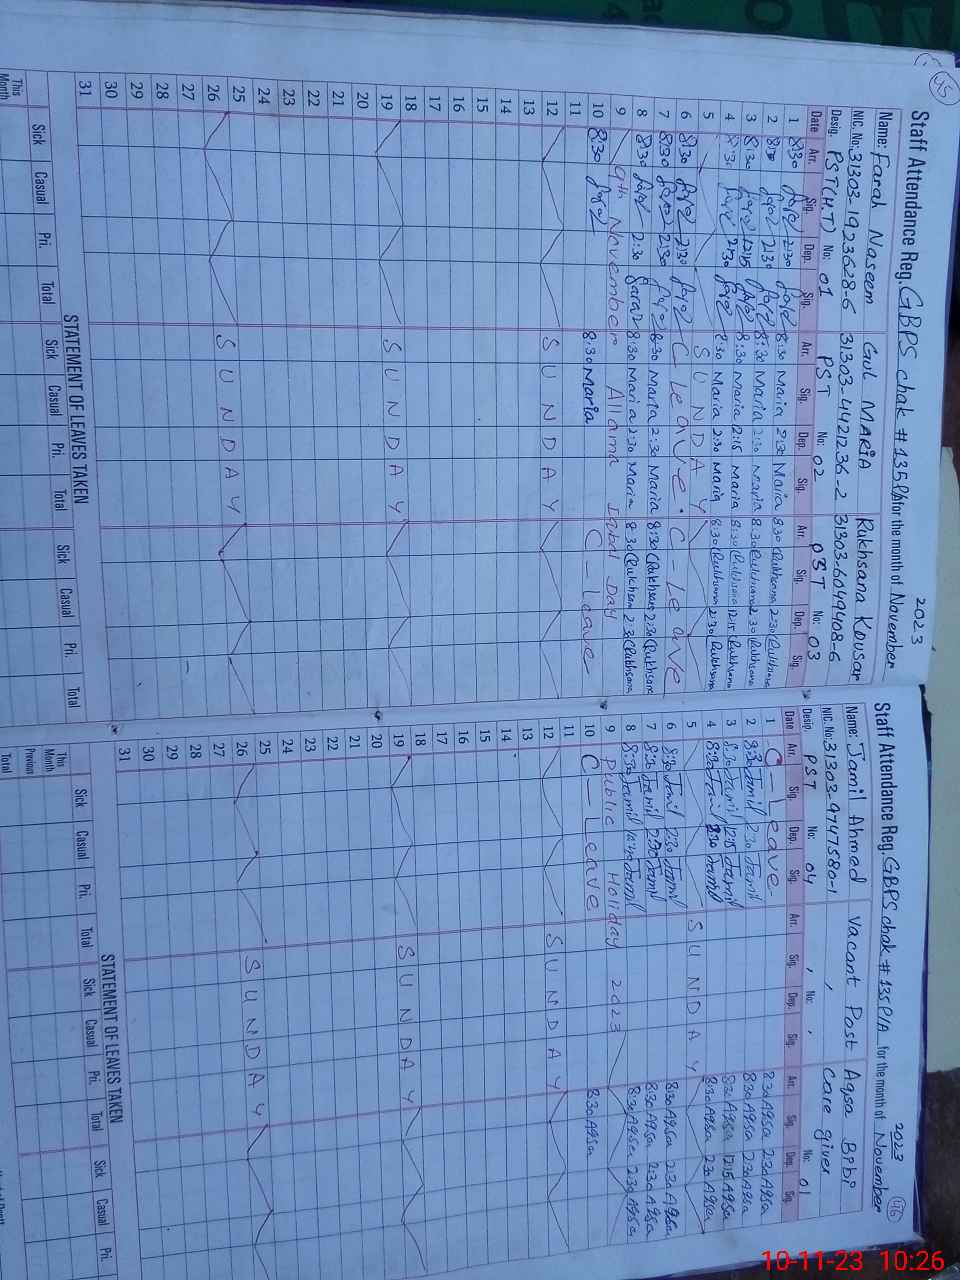 45
Staff Attendance Reg. GBPS chak # 135P/A for the month of November 2023
Name: Farah Naseem Gul MARIA Rukhsana Kousar
NIC. No: 31303-1923628-6 31303-4421236-2 31303-6049408-6
Desig. PST(HT) No: 01 PST No: 02 PST No: 03
Date Arr. Sig. Dep. Sig. Arr. Sig. Dep. Sig. Arr. Sig. Dep. Sig.
1 8:30 2:30 8:30 Maria 2:30 Maria 8:30 Rukhsana 2:30 Rukhsana
2 8:30 2:30 8:30 Maria 2:30 Maria 8:30 Rukhsana 2:30 Rukhsana
3 8:30 12:15 8:30 Maria 12:15 Maria 8:30 Rukhsana 12:15 Rukhsana
4 8:30 2:30 8:30 Maria 2:30 Maria 8:30 Rukhsana 2:30 Rukhsana
5 SUNDAY
6 8:30 2:30 C Leave. C-Leave
7 8:30 2:30 8:30 Maria 2:30 Maria 8:30 Rukhsana 2:30 Rukhsana
8 8:30 2:30 8:30 Maria 2:30 Maria 8:30 Rukhsana 2:30 Rukhsana
9 9th November Allama Iqbal Day
10 8:30 8:30 Maria C-Leave
11
12 SUNDAY
13
14
15
16
17
18
19 SUNDAY
20
21
22
23
24
25
26 SUNDAY
27
28
29
30
31
STATEMENT OF LEAVES TAKEN
Sick Casual Pri. Total Sick Casual Pri. Total Sick Casual Pri. Total
This Month
46
Staff Attendance Reg. GBPS chak # 135P/A for the month of November 2023
Name: Jamil Ahmed Vacant Post Aqsa Bibi
NIC. No: 31303-9747580-1 care giver
Desig. PST No: 04 No: No: 01
Date Arr. Sig. Dep. Sig. Arr. Sig. Dep. Sig. Arr. Sig. Dep. Sig.
1 C-Leave- 830 Aqsa 230 Aqsa
2 8:30 Jamil 2:30 Jamil 830 Aqsa 230 Aqsa
3 8:30 Jamil 12:15 Jamil 830 Aqsa 1215 Aqsa
4 8:30 Jamil 2:30 Jamil 830 Aqsa 230 Aqsa
5 SUNDAY
6 8:30 Jamil 2:30 Jamil 830 Aqsa 230 Aqsa
7 8:30 Jamil 2:30 Jamil 830 Aqsa 230 Aqsa
8 8:30 Jamil Jamil 830 Aqsa 230 Aqsa
9 Public Holiday 2023
10 C-Leave 830 Aqsa
11
12 SUNDAY
13
14
15
16
17
18
19 SUNDAY
20
21
22
23
24
25
26 SUNDAY
27
28
29
30
31
STATEMENT OF LEAVES TAKEN
Sick Casual Pri. Total Sick Casual Pri. Total Sick Casual Pri.
This Month
Previous
Total
10-11-23 10:26